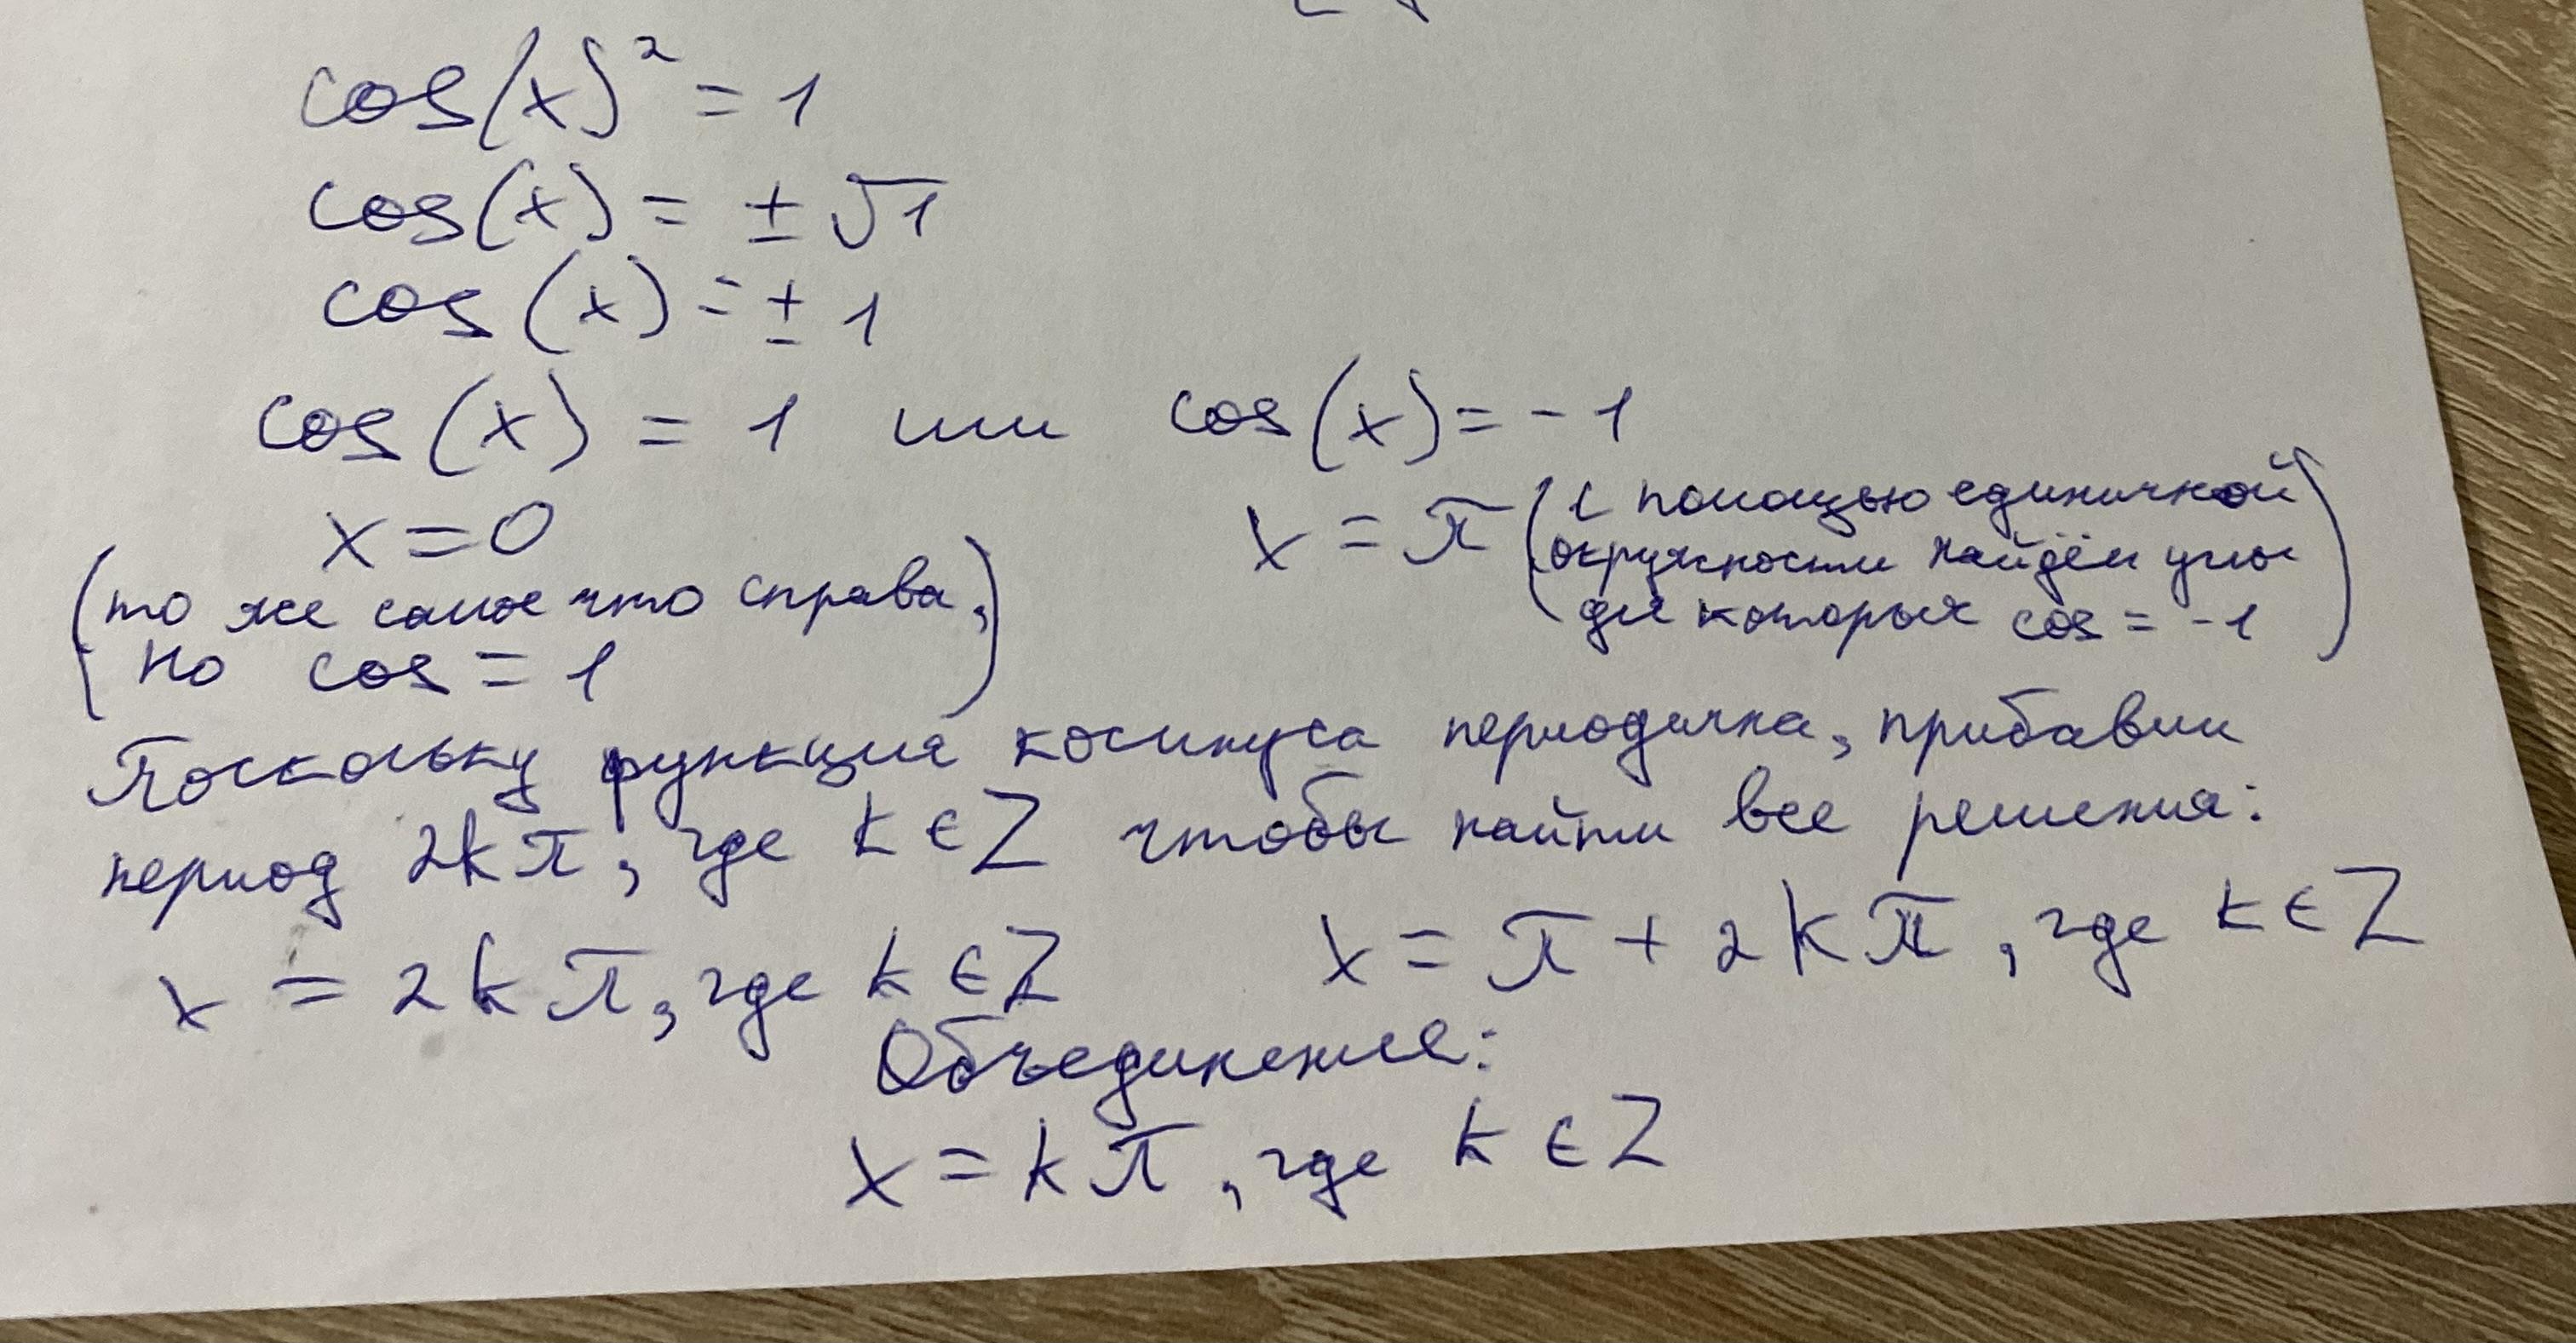 cos(x)² = 1
cos(x) = ± √1
cos(x) = ± 1
cos(x) = 1 или cos(x) = - 1
x = 0
(то же самое что справа,
но cos = 1)
x = π (с помощью единичной
окружности найдём углы
для которых cos = -1)
Поскольку функция косинуса периодична, прибавим
период 2kπ, где k ∈ Z чтобы найти все решения:
x = 2kπ, где k ∈ Z
x = π + 2kπ, где k ∈ Z
Объединение:
x = kπ, где k ∈ Z